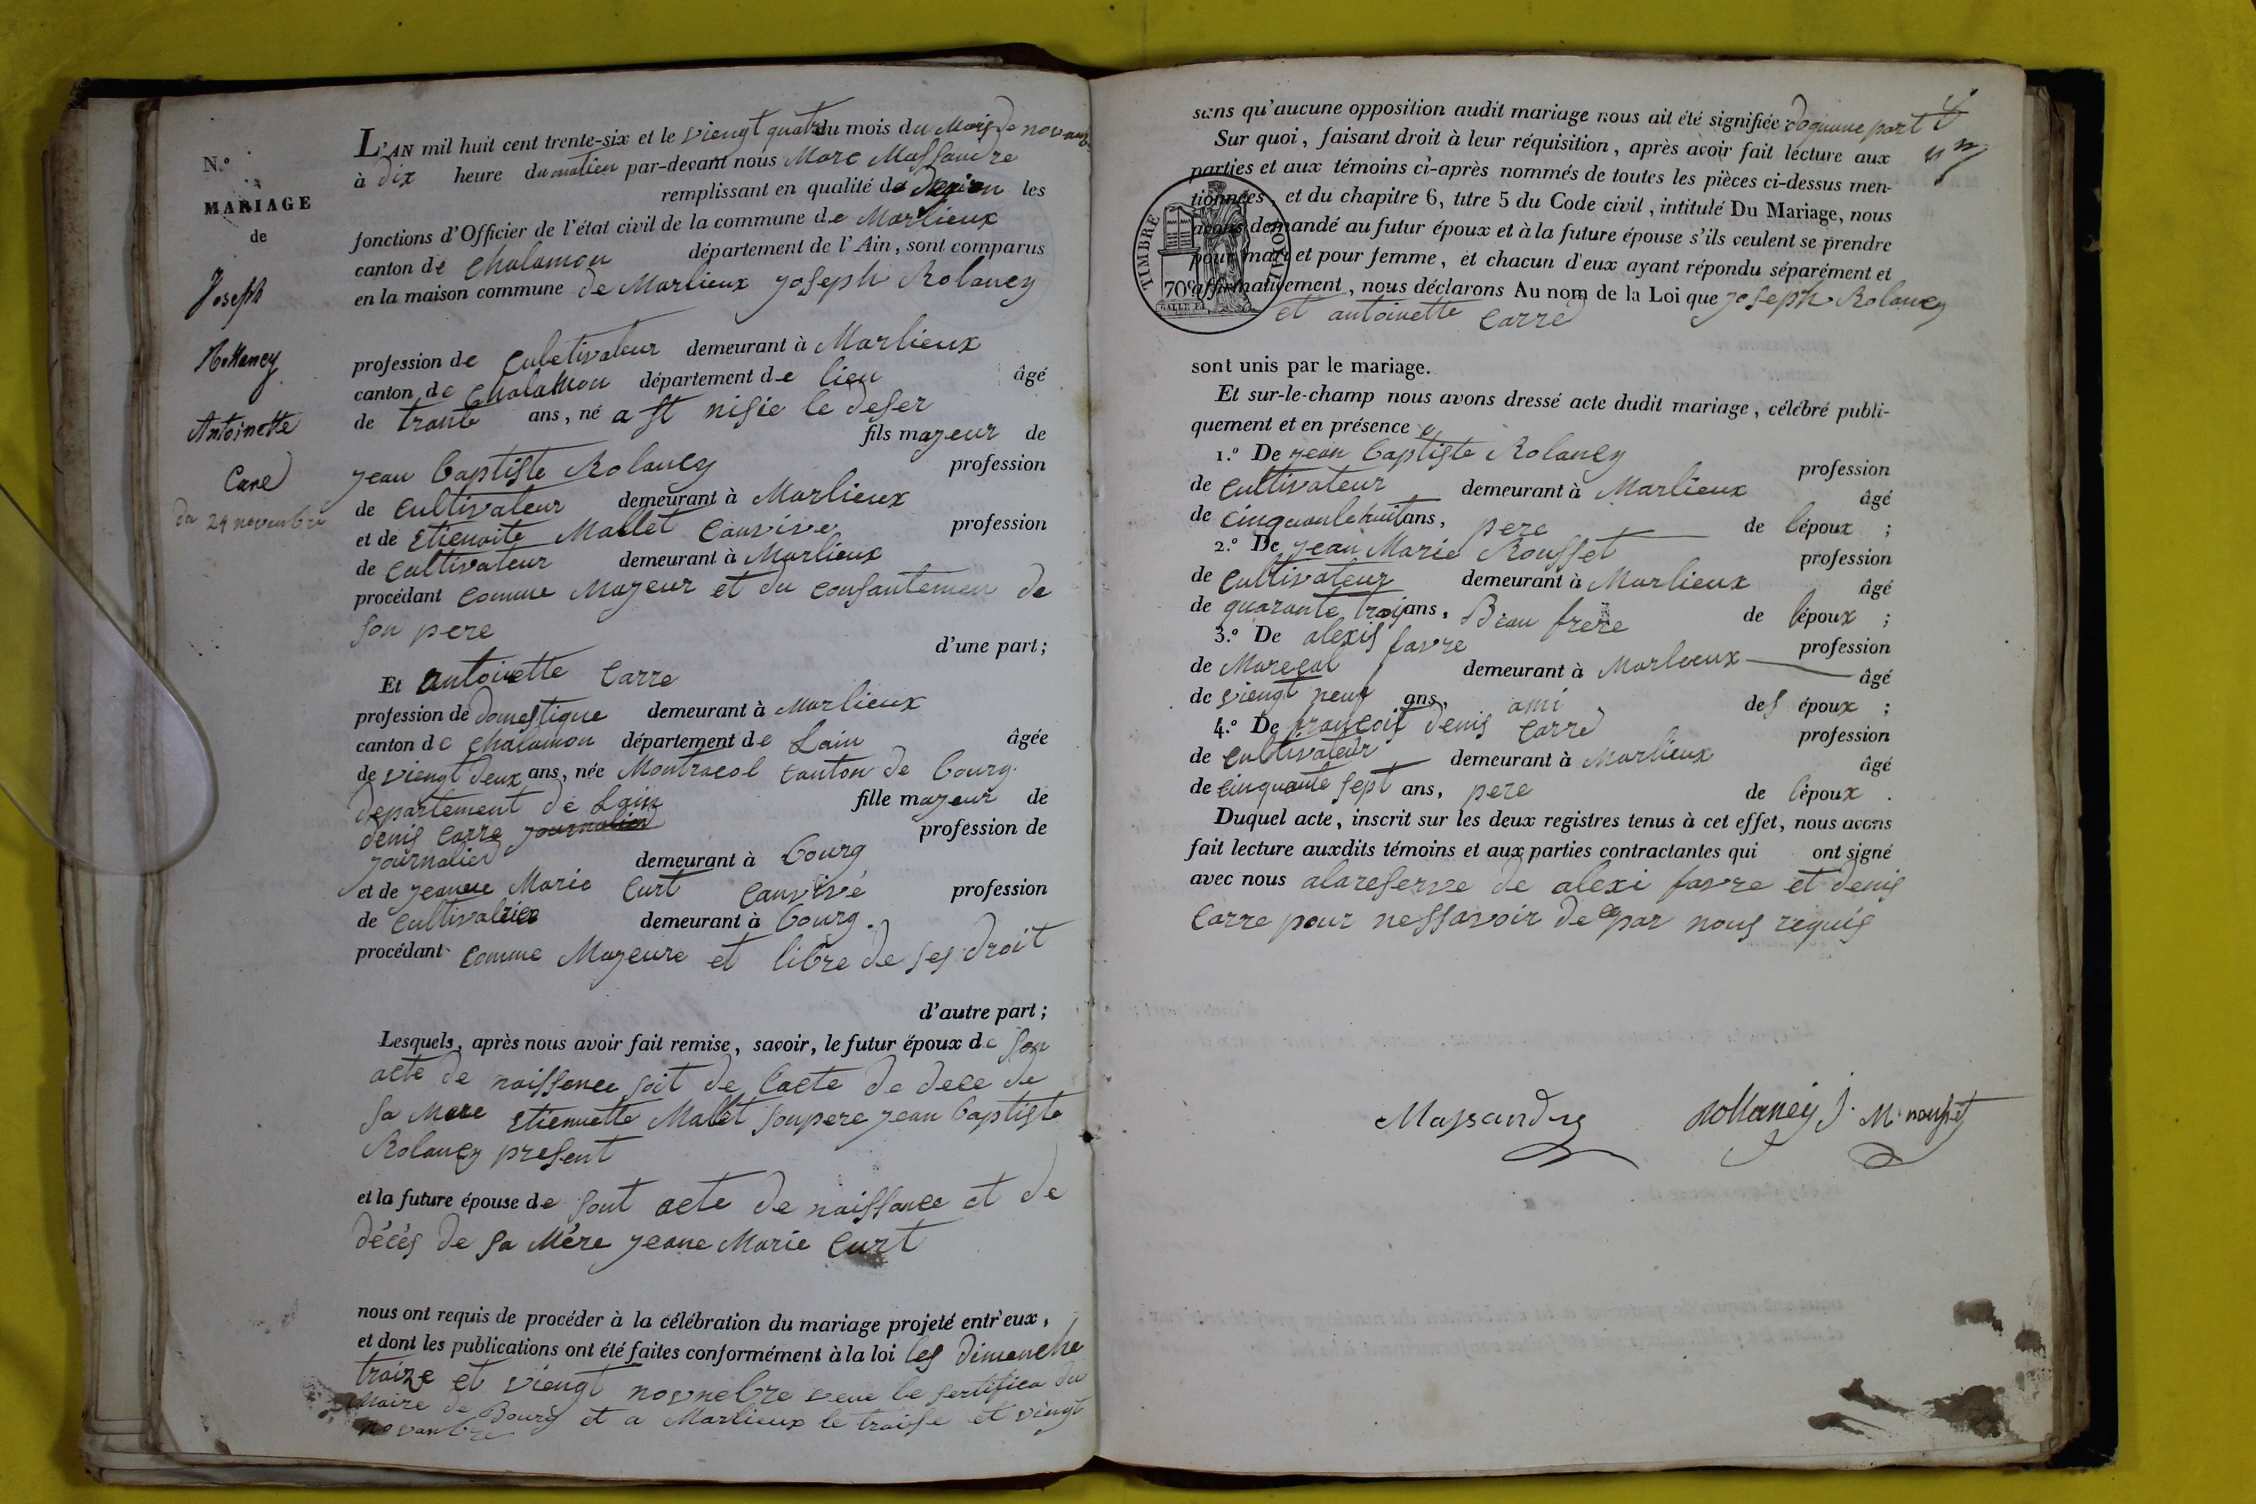 N.°
MARIAGE
de
Joseph
Rollancy
Antoinette
Carré
du 24 novembre
L'AN mil huit cent trente-six et le viengt quatre du mois du Mois de novanb
à dix heure du matien par-devant nous Marc Massandre
remplissant en qualité de les
fonctions d'Officier de l'état civil de la commune de Marlieux
canton de Chalamon département de l'Ain, sont comparus
en la maison commune de Marlieux Joseph Rolancy
profession de Culetivateur demeurant à Marlieux
canton de Chalamon département de lieu âgé
de trante ans, né a st nisie le deser
fils majeur de
Jean Baptiste Rolancy profession
de Cultivateur demeurant à Marlieux
et de Etienoite Mallet Canvive profession
de Cultivateur demeurant à Marlieux
procédant comme Majeur et du consantemen de
son pere
d'une part;
Et antoinette Carre
profession de domestique demeurant à Marlieux
canton de Chalamon département de Lain âgée
de viengt deux ans, née Montracol canton de bourg
departement de Lain fille majeur de
denis Carre journalier profession de
journalier demeurant à bourg
et de Jeanne Marie Curt Canvivé profession
de Cultivatrice demeurant à bourg.
procédant comme Majeure et libre de ses droit
d'autre part;
Lesquels, après nous avoir fait remise, savoir, le futur époux de son
acte de naissence soit de l'acte de dece de
sa Mere Etiennette Mallet son pere Jean baptiste
Rolancy present
et la future épouse de sont acte de naissance et de
décès de sa Mére Jeane Marie Curt
nous ont requis de procéder à la célébration du mariage projeté entr'eux,
et dont les publications ont été faites conformément à la loi les dimenche
traize et viengt novnebre veue le sertifica du
Maire de Bourg et a Marlieux le traise et viengt
novanbre
sans qu'aucune opposition audit mariage nous ait été signifiée d'oqunne part
Sur quoi, faisant droit à leur réquisition, après avoir fait lecture aux
parties et aux témoins ci-après nommés de toutes les pièces ci-dessus men-
tionnées, et du chapitre 6, titre 5 du Code civil, intitulé Du Mariage, nous
avons demandé au futur époux et à la future épouse s'ils veulent se prendre
pour mari et pour femme, et chacun d'eux ayant répondu séparément et
affirmativement, nous déclarons Au nom de la Loi que Joseph Rolancy
et antoinette Carré
TIMBRE ROYAL
70c
sont unis par le mariage.
Et sur-le-champ nous avons dressé acte dudit mariage, célébré publi-
quement et en présence
1.° De Jean baptiste Rolancy profession
de Cultivateur demeurant à Marlieux âgé
de cinquante huit ans, pere de l'époux ;
2.° De Jean Marie Rousset profession
de Cultivateur demeurant à Marlieux âgé
de quarante trois ans, Beau frere de l'époux ;
3.° De alexis favre profession
de Marecal demeurant à Marlieux âgé
de viengt neuf ans, ami des époux ;
4.° De françois denis Carré profession
de Cultivateur demeurant à Marlieux âgé
de cinquante sept ans, pere de l'époux .
Duquel acte, inscrit sur les deux registres tenus à cet effet, nous avons
fait lecture auxdits témoins et aux parties contractantes qui ont signé
avec nous alareserve de alexi favre et denis
Carre pour nessavoir de ce par nous requis
Massandre Rollancy J. M. rousset